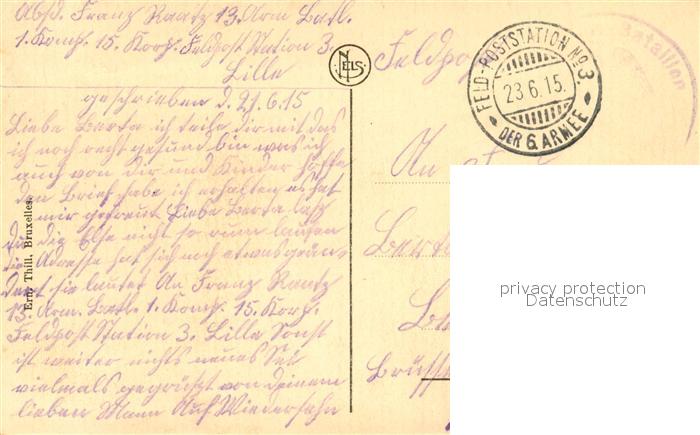 Absd. Franz Raatz 13. Arm. Batl.
1. Komp. 15. Korps. Feldpost Station 3.
Lille
geschrieben d. 21.6.15
Liebe Berta ich teile dir mit das
ich noch recht gesund bin was ich
auch von dir und Kinder hoffe
den Brief habe ich erhalten es hat
mir gefreut Liebe Berta laß
die Else nicht so rum laufen
die Adresse hat sich noch etwas
sie lautet An Franz Raatz
13. Arm. Batl. 1. Komp. 15. Korps.
Feldpost Station 3. Lille Sonst
ist weiter nichts neues Sei
vielmals gegrüßt von deinem
lieben Mann Auf Wiedersehn
Ern. Thill, Bruxelles.
NELS
Feldpo
FELD-POSTSTATION No 3.
23.6.15.
DER 6. ARMEE
Bataillon
An
privacy protection
Datenschutz